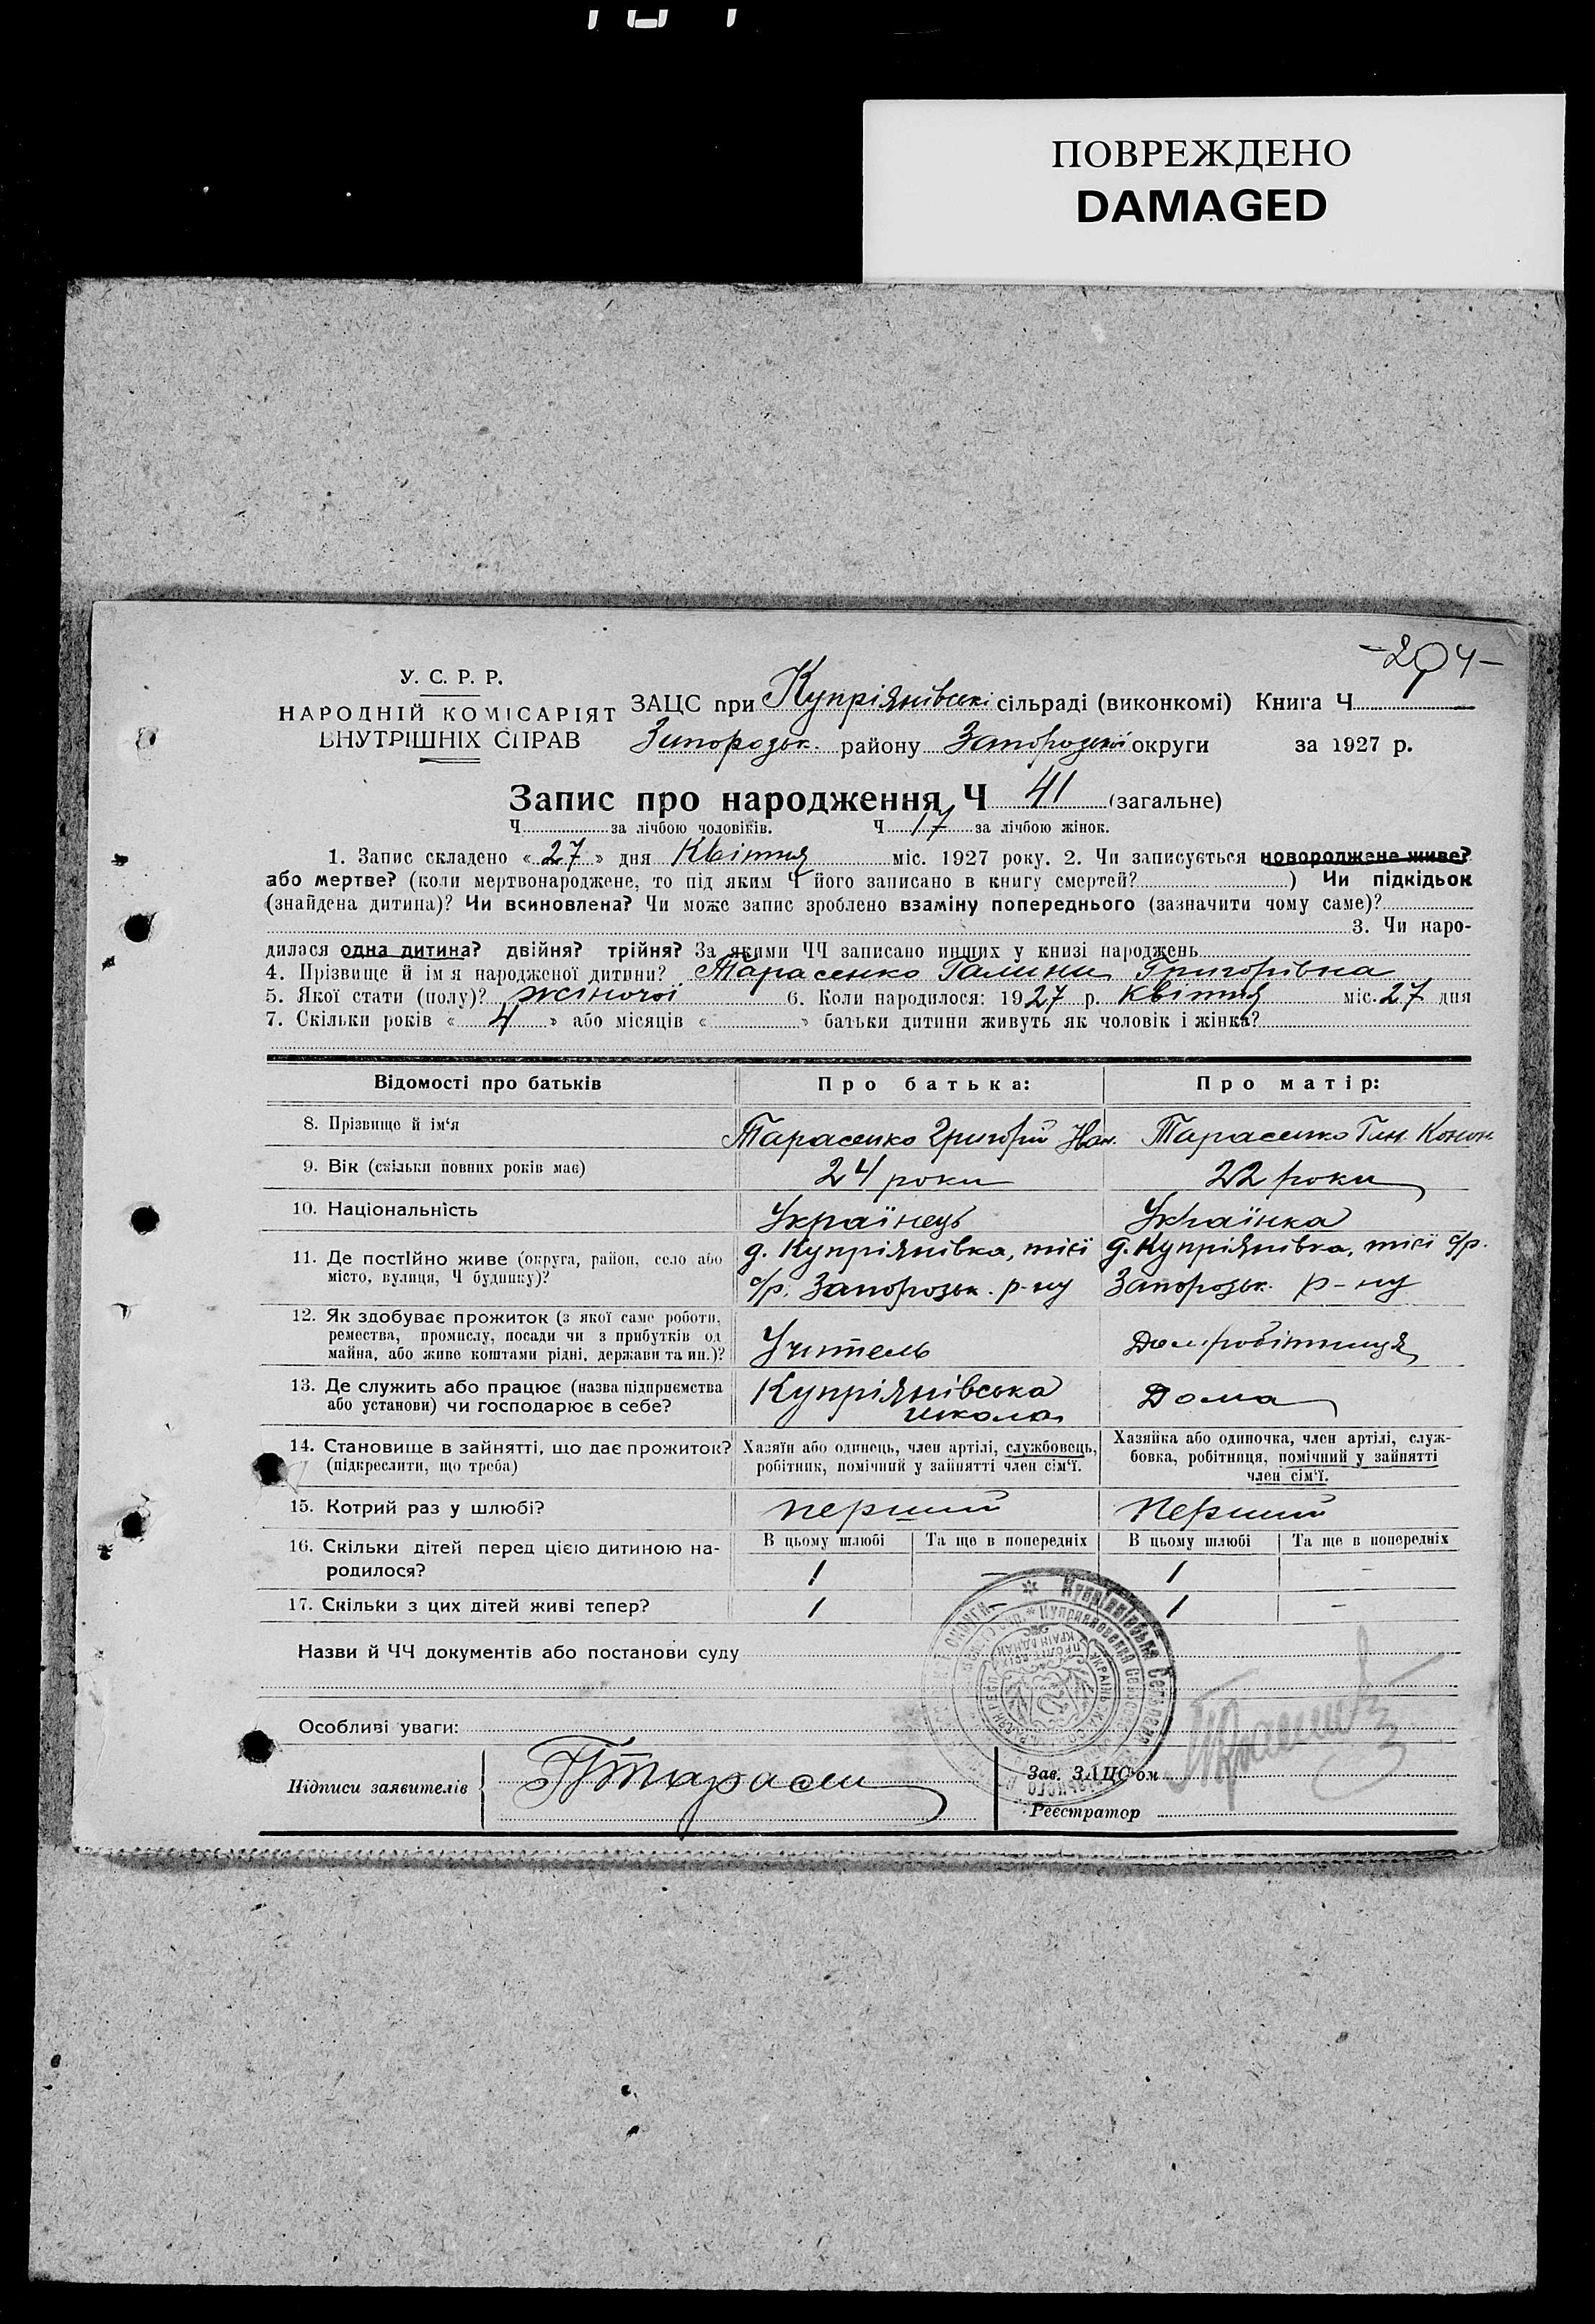 ПОВРЕЖДЕНО
DAMAGED
-204-
У. С. Р. Р.
НАРОДНІЙ КОМІСАРІЯТ
ВНУТРІШНІХ СПРАВ
ЗАЦС при Купріянівські сільраді (виконкомі) Книга Ч
Запорозьк. району Запорозької округи за 1927 р.
Запис про народження Ч 41 (загальне)
Ч за лічбою чоловіків. Ч 17 за лічбою жінок.
1. Запис складено « 27 » дня Квітня міс. 1927 року. 2. Чи записується новороджене живе?
або мертве? (коли мертвонароджене, то під яким Ч його записано в книгу смертей? ) Чи підкідьок
(знайдена дитина)? Чи всиновлена? Чи може запис зроблено взаміну попереднього (зазначити чому саме)?
3. Чи наро-
дилася одна дитина? двійня? трійня? За якими ЧЧ записано инших у книзі народжень
4. Прізвище й ім я народженої дитини? Тарасенко Галини Григорівна
5. Якої стати (полу)? жіночої 6. Коли народилося: 1927 р. Квітня міс. 27 дня
7. Скільки років « 4 » або місяців « » батьки дитини живуть як чоловік і жінка?
Відомості про батьків Про батька: Про матір:
8. Прізвище й ім‘я Тарасенко Григорій Іван. Тарасенко Конон.
9. Вік (скільки повних років має) 24 роки 22 роки
10. Національність Українець Українка
11. Де постійно живе (округа, район, село або місто, вулиця, Ч будинку)?
д. Купріянівка, тієї с/р. Запорозьк. р-ну
д. Купріянівка, тієї с/р. Запорозьк. р-ну
12. Як здобуває прожиток (з якої саме роботи,
ремества, промислу, посади чи з прибутків од
майна, або живе коштами рідні, держави та ин.)?
Учитель Домробітниця
13. Де служить або працює (назва підприємства
або установи) чи господарює в себе?
Купріянівська
школа
Дома
14. Становище в зайнятті, що дає прожиток?
(підкреслити, що треба)
Хазяїн або одинець, член артілі, службовець,
робітник, помічний у зайнятті член сім‘ї.
Хазяйка або одиночка, член артілі, служ-
бовка, робітниця, помічний у зайнятті
член сім‘ї.
15. Котрий раз у шлюбі? перший Перший
16. Скільки дітей перед цією дитиною на-
родилося?
В цьому шлюбі Та ще в попередніх В цьому шлюбі Та ще в попередніх
1 - 1 -
17. Скільки з цих дітей живі тепер? 1 1 -
Назви й ЧЧ документів або постанови суду
Особливі уваги:
Підписи заявителів
Зав. ЗАЦС‘ом
Реєстратор